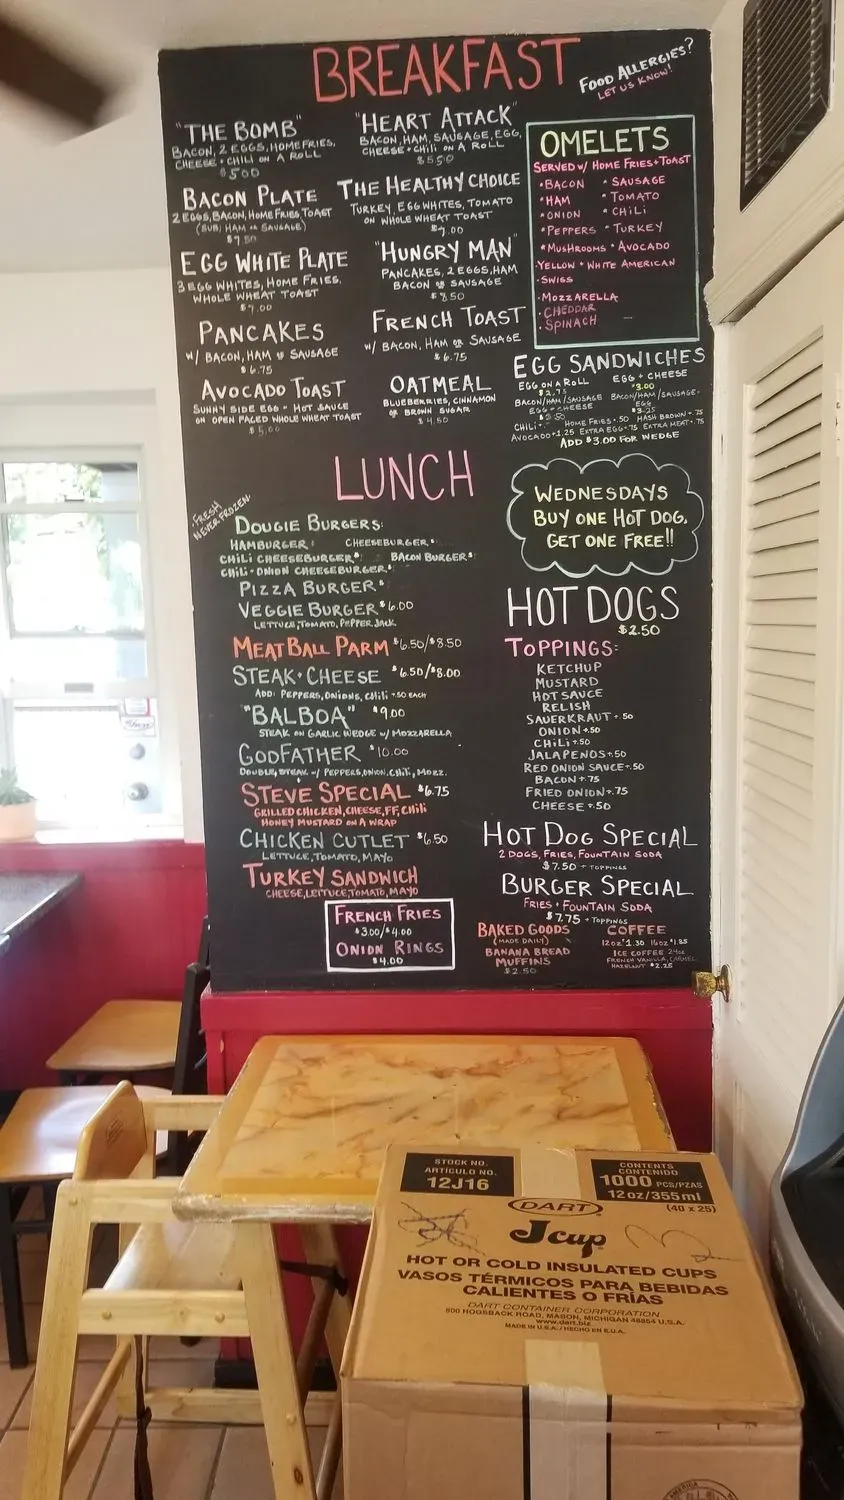 BREAKFAST
FOOD ALLERGIES?
LET US KNOW!
"THE BOMB"
BACON, 2 EGGS, HOMEFRIES,
CHEESE + CHILI ON A ROLL
$5.00
"HEART ATTACK"
BACON, HAM, SAUSAGE, EGG,
CHEESE + CHILI ON A ROLL
$5.50
BACON PLATE
2 EGGS, BACON, HOME FRIES, TOAST
(SUB: HAM OR SAUSAGE)
$7.50
THE HEALTHY CHOICE
TURKEY, EGG WHITES, TOMATO
ON WHOLE WHEAT TOAST
EGG WHITE PLATE
3 EGG WHITES, HOME FRIES,
WHOLE WHEAT TOAST
$7.00
"HUNGRY MAN"
PANCAKES, 2 EGGS, HAM
BACON OR SAUSAGE
$8.50
PANCAKES
W/ BACON, HAM OR SAUSAGE
$6.75
FRENCH TOAST
W/ BACON, HAM OR SAUSAGE
$6.75
AVOCADO TOAST
SUNNY SIDE EGG + HOT SAUCE
ON OPEN FACED WHOLE WHEAT TOAST
OATMEAL
BLUEBERRIES, CINNAMON
OR BROWN SUGAR
$4.50
OMELETS
SERVED W/ HOME FRIES + TOAST
• BACON • SAUSAGE
• HAM • TOMATO
• ONION • CHILI
• PEPPERS • TURKEY
• MUSHROOMS • AVOCADO
• YELLOW + WHITE AMERICAN
• SWISS
• MOZZARELLA
• CHEDDAR
• SPINACH
EGG SANDWICHES
EGG ON A ROLL
$2.75
BACON/HAM/SAUSAGE
EGG + CHEESE
EGG + CHEESE
$3.00
BACON/HAM/SAUSAGE +
EGG
$3.25
CHILI + HOME FRIES + .50 HASH BROWN + .75
AVOCADO + 1.25 EXTRA EGG + .75 EXTRA MEAT + .75
ADD $3.00 FOR WEDGE
LUNCH
• FRESH
NEVER FROZEN •
DOUGIE BURGERS:
HAMBURGER $ CHEESEBURGER $
CHILI CHEESEBURGER $ BACON BURGER $
CHILI + ONION CHEESEBURGER $
PIZZA BURGER $
VEGGIE BURGER $6.00
LETTUCE, TOMATO, PEPPER JACK
MEATBALL PARM $6.50/$8.50
STEAK + CHEESE $6.50/$8.00
ADD: PEPPERS, ONIONS, CHILI + .50 EACH
"BALBOA" $9.00
STEAK ON GARLIC WEDGE W/ MOZZARELLA
GODFATHER $10.00
DOUBLE STEAK W/ PEPPERS, ONION, CHILI, MOZZ.
STEVE SPECIAL $6.75
GRILLED CHICKEN, CHEESE, FF, CHILI
HONEY MUSTARD ON A WRAP
CHICKEN CUTLET $6.50
LETTUCE, TOMATO, MAYO
TURKEY SANDWICH
CHEESE, LETTUCE, TOMATO, MAYO
FRENCH FRIES
$3.00/$4.00
ONION RINGS
$4.00
WEDNESDAYS
BUY ONE HOT DOG,
GET ONE FREE!!
HOT DOGS
$2.50
TOPPINGS:
KETCHUP
MUSTARD
HOT SAUCE
RELISH
SAUERKRAUT + .50
ONION + .50
CHILI + .50
JALAPENOS + .50
RED ONION SAUCE + .50
BACON + .75
FRIED ONION + .75
CHEESE + .50
HOT DOG SPECIAL
2 DOGS, FRIES, FOUNTAIN SODA
$7.50 + TOPPINGS
BURGER SPECIAL
FRIES + FOUNTAIN SODA
$7.75 + TOPPINGS
BAKED GOODS
(MADE DAILY)
BANANA BREAD
MUFFINS
$2.50
COFFEE
12 OZ $1.30 16 OZ $1.85
ICE COFFEE 24 OZ
FRENCH VANILLA, CARAMEL
HAZELNUT $2.25
STOCK NO.
ARTÍCULO NO.
12J16
CONTENTS
CONTENIDO
1000 PCS/PZAS
12 oz/355 ml
(40 x 25)
DART
J cup
HOT OR COLD INSULATED CUPS
VASOS TÉRMICOS PARA BEBIDAS
CALIENTES O FRÍAS
DART CONTAINER CORPORATION
500 HOGSBACK ROAD, MASON, MICHIGAN 48854 U.S.A.
www.dart.biz
MADE IN U.S.A. / HECHO EN E.U.A.